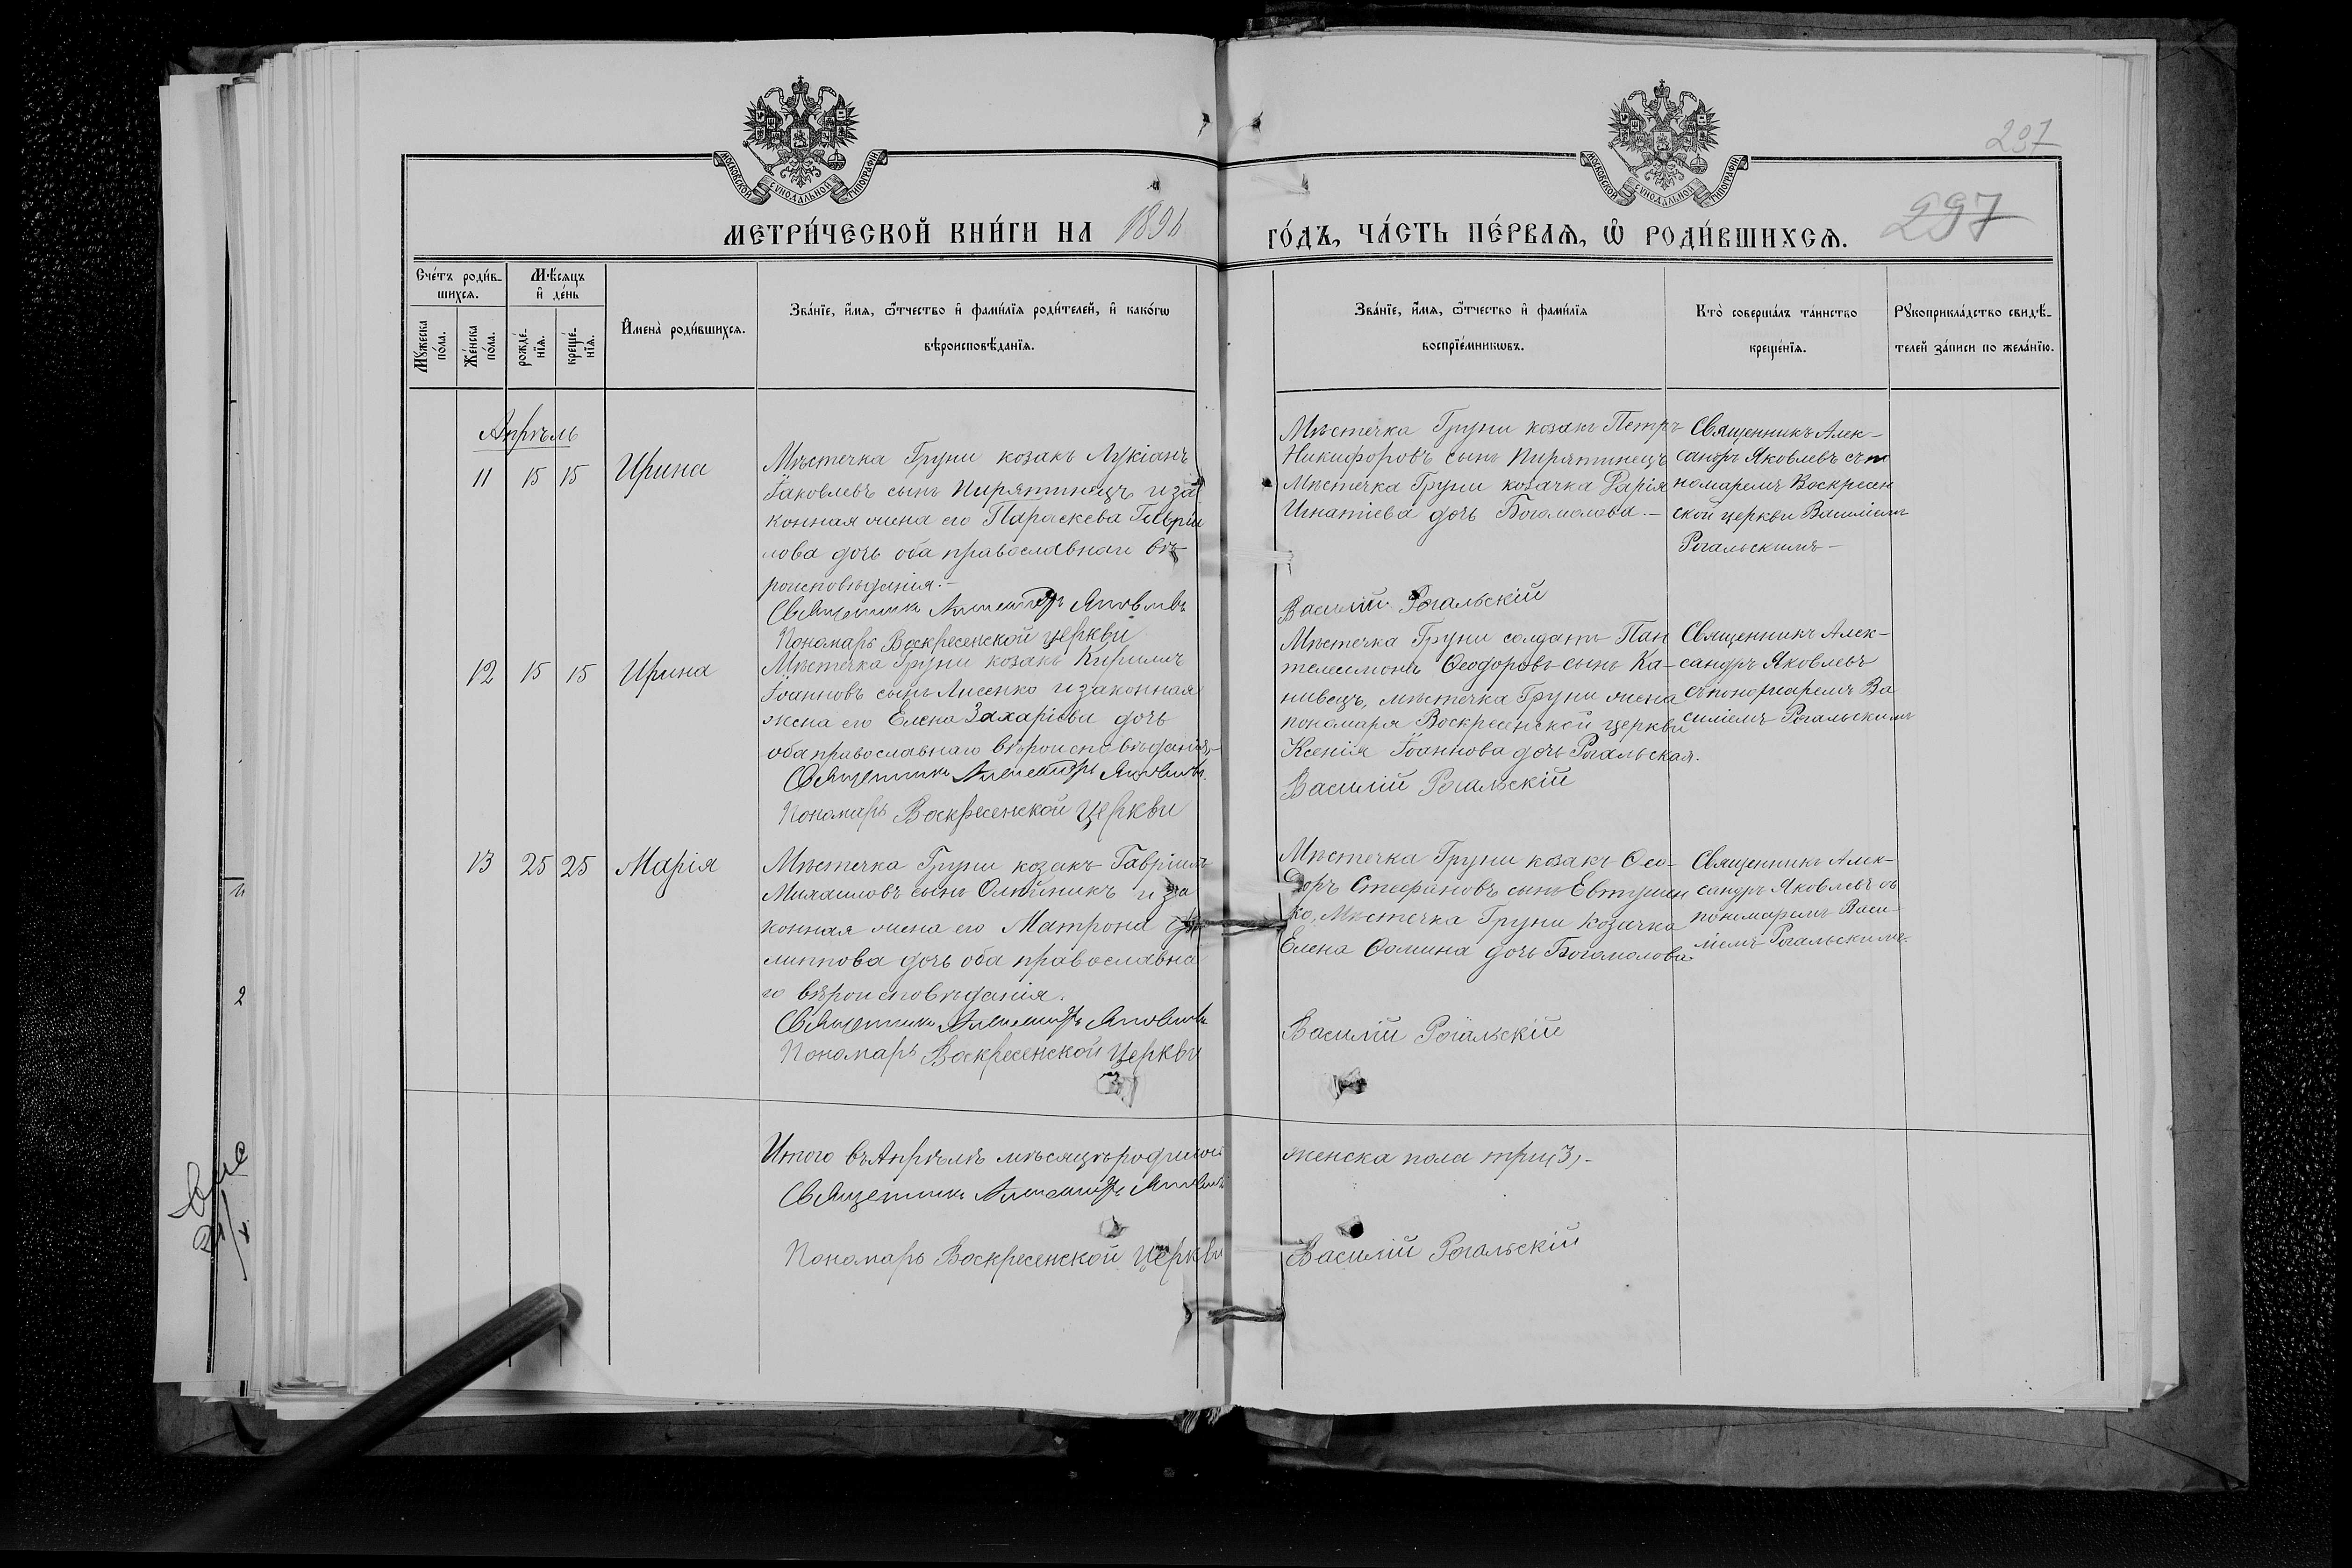 237
297
МОСКОВСКОЙ СѴНОДАЛЬНОЙ ТИПОГРАФІИ
МОСКОВСКОЙ СѴНОДАЛЬНОЙ ТИПОГРАФІИ
МЕТРИ́ЧЕСКОЙ КНИ́ГИ НА 1896
ГО́ДЪ, ЧА́СТЬ ПЕ́РВАѦ, Ѡ҆ РОДИ́ВШИХСѦ.
Сче́тъ роди́в-
шихсѧ.
Мѣ́сѧцъ
и҆ де́нь
Мꙋ́жеска
по́ла.
Же́нска
по́ла.
рожде́-
нїѧ.
креще́-
нїѧ.
И҆мена̀ роди́вшихсѧ.
Зва́нїе, и҆́мѧ, ѻ҆́тчество и҆ фами́лїѧ роди́телей, и҆ како́гѡ
вѣроисповѣ́данїѧ.
Зва́нїе, и҆́мѧ, ѻ҆́тчество и҆ фами́лїѧ
воспрїе́мникѡвъ.
Кто̀ соверша́лъ та́инство
креще́нїѧ.
Рꙋкоприкла́дство свидѣ́-
телей за́писи по жела́нїю.
Апрѣль
11 15 15 Ирина
Мѣстечка Груни козакъ Лукіанъ
Іаковлевъ сынъ Пирятинецъ и за
конная жена его Параскева Гаврiи
лова дочь оба православнаго вѣ
роисповѣданія.-
Священникъ Александръ Яковлевъ
Пономарь Воскресенской церкви
Мѣстечка Груни козакъ Петръ
Никифоровъ сынъ Пирятинецъ
Мѣстечка Груни козачка Дарія
Игнатіева дочь Богомолова.-
Василій Рогальскій
Священникъ Алек-
сандръ Яковлевъ съ по
номаремъ Воскресен
ской церкви Василіемъ
Рогальскимъ-
12 15 15 Ирина
Мѣстечка Груни козакъ Кириллъ
Іоанновъ сынъ Лисенко и законная
жена его Елена Захаріева дочь
оба православнаго вѣроисповѣданія-
Священникъ Александръ Яковлевъ.
Пономарь Воскресенской церкви
Мѣстечка Груни солдатъ Пан
телеимонъ Ѳеодоровъ сынъ Ка-
нивецъ, мѣстечка Груни жена
пономаря Воскресенской церкви
Ксенія Іоаннова дочь Рогальская.
Василій Рогальскій
Священникъ Алек-
сандръ Яковлевъ
съ пономаремъ Ва
силіемъ Рогальскимъ
13 25 25 Марія
Мѣстечка Груни козакъ Гавріилъ
Михаиловъ сынъ Олѣйникъ и за
конная жена его Матрона Фи
липпова дочь оба православна
го вѣроисповѣданія.
Священникъ Александръ Яковлевъ
Пономарь Воскресенской церкви
Мѣстечка Груни козакъ Ѳео-
доръ Стефановъ сынъ Евтушен
ко, Мѣстечка Груни козачка
Елена Ѳомина дочь Богомолова.
Василій Рогальскій
Священникъ Алек-
сандръ Яковлевъ съ
пономаремъ Васи-
ліемъ Рогальскимъ.
Итого въ Апрѣлѣ мѣсяцѣ родилось
женска пола три (3)-
Священникъ Александръ Яковлевъ
Пономарь Воскресенской церкви
Василій Рогальскій
2